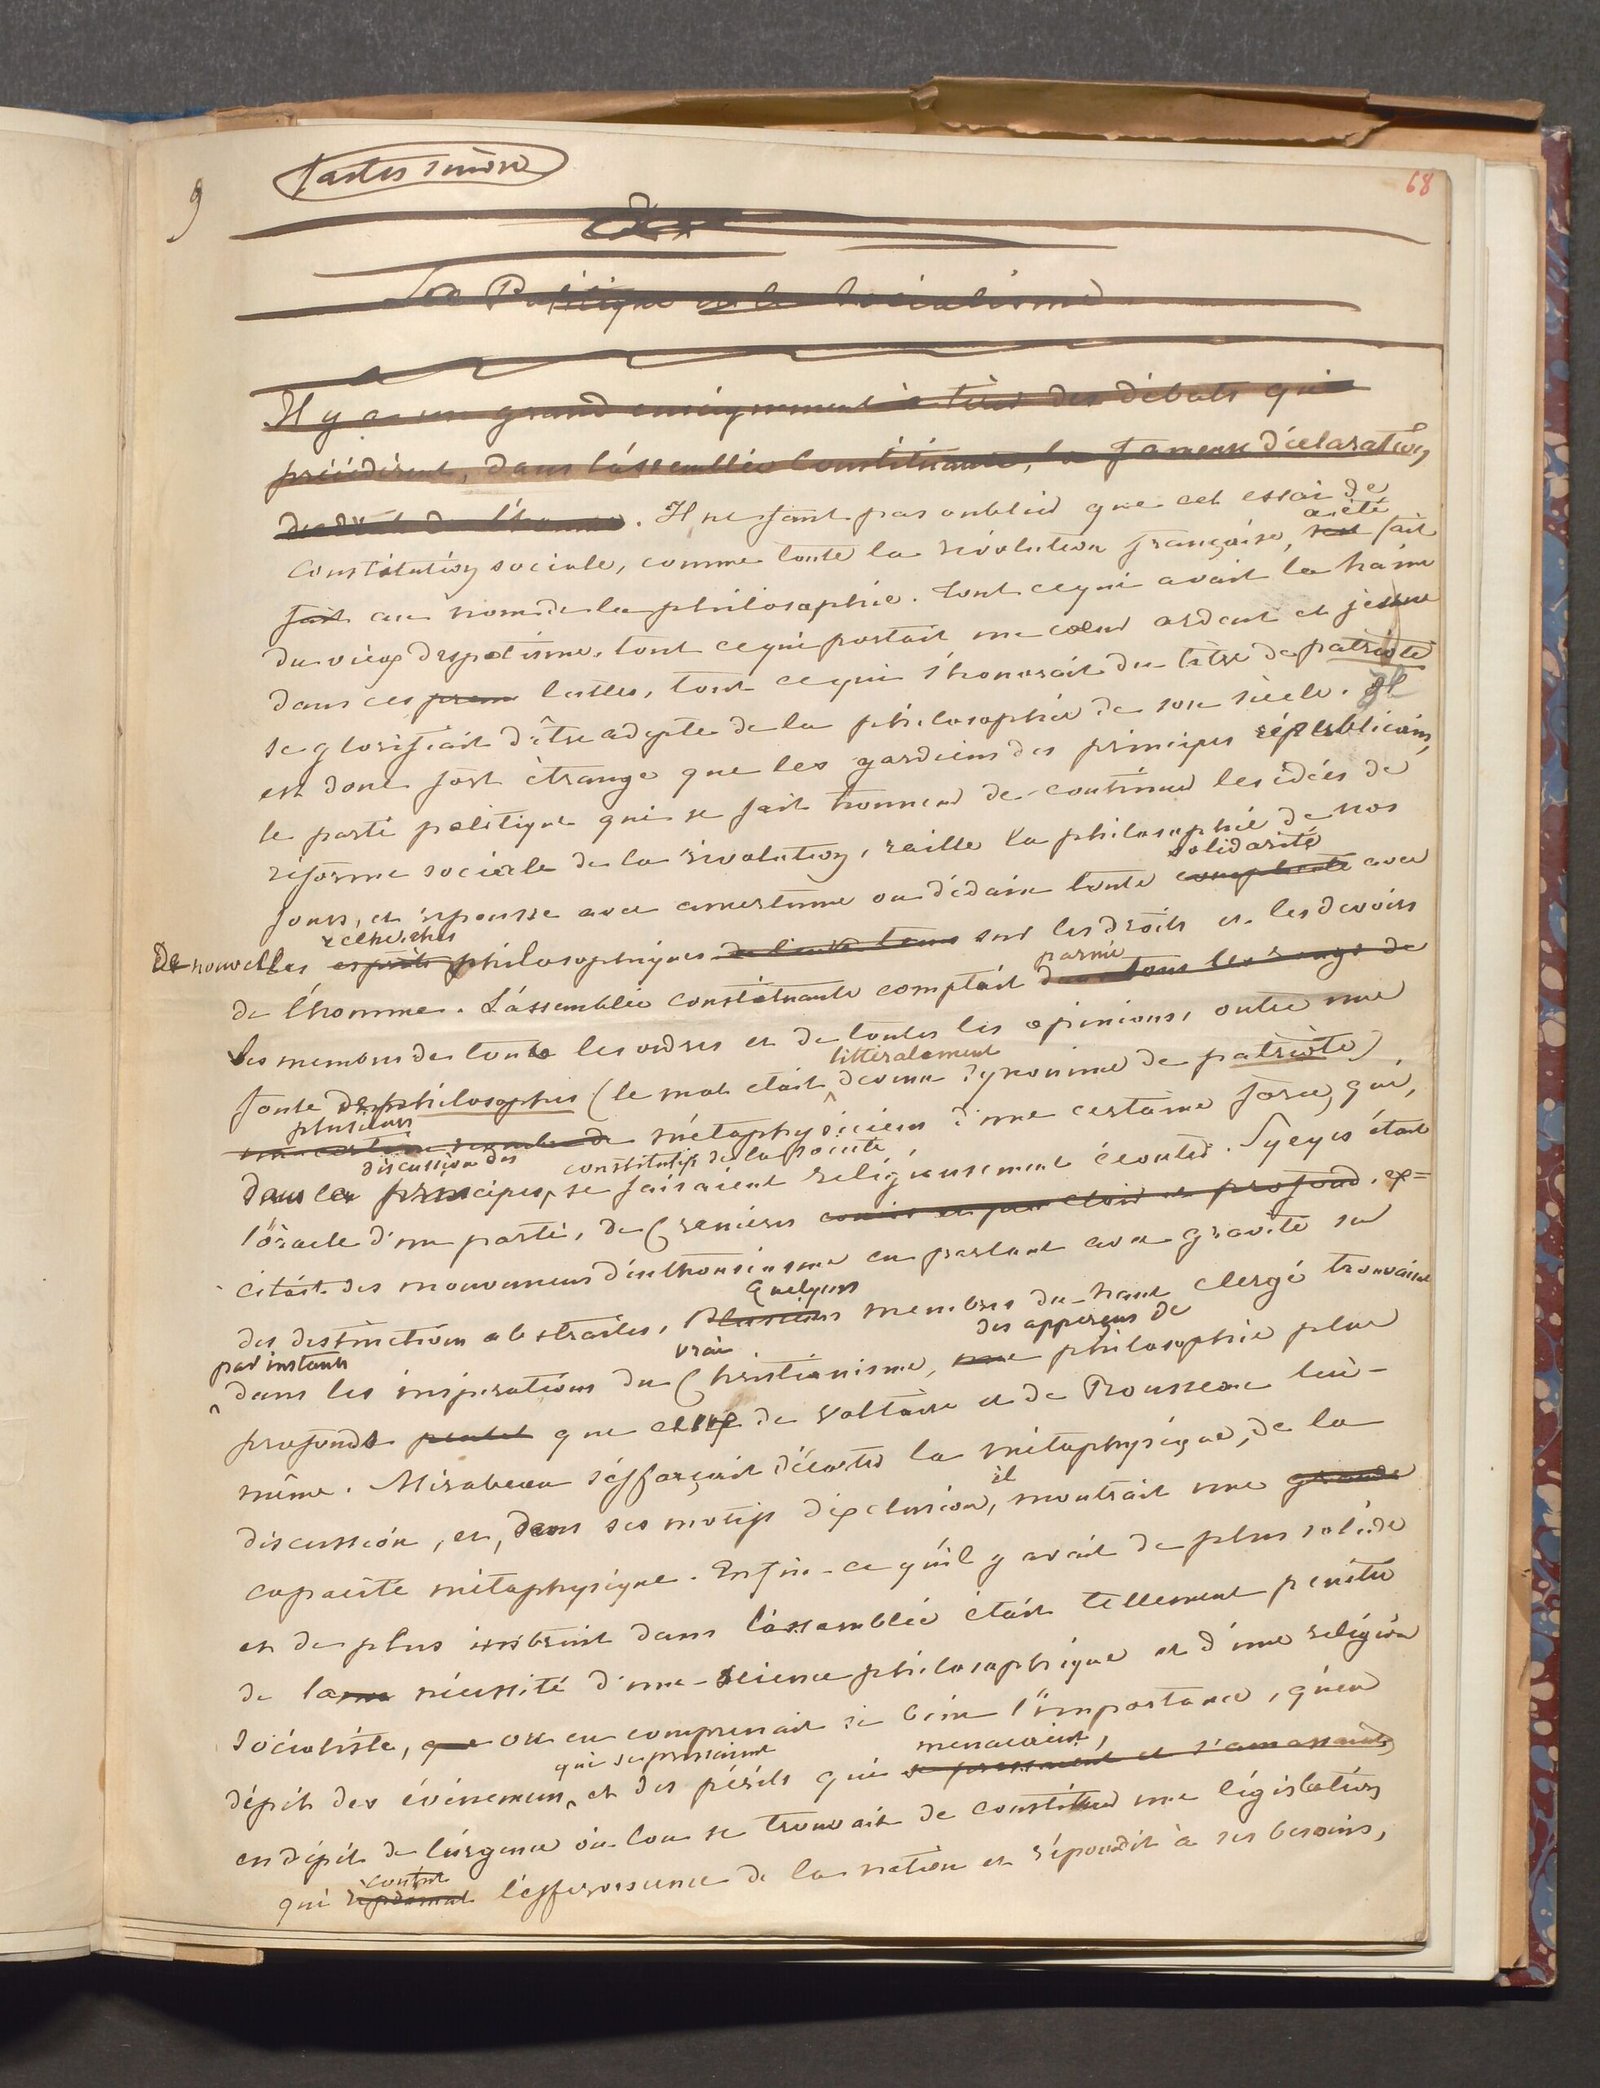 9
68
La Politique et le Socialisme
Il y a un grand enseignement à tirer des débats qui
précédèrent, dans l'assemblée Constituante, la fameuse déclaration
de l'homme. Il ne faut pas oublier que cet essai de
a été
constitution sociale, comme toute la révolution française, fait
fait au nom de la philosophie. Tout ce qui avait la haine
du vieux despotisme, tout ce qui portait un cœur ardent et jeune
dans ces prem luttes, tout ce qui s'honorait du titre de patriote
se glorifiait d'être adepte de la philosophie de son siècle. Il
est donc fort étrange que les gardiens des principes républicains,
le parti politique qui se fait honneur de continuer les idées de
réforme sociale de la révolution, raille la philosophie de nos
solidarité
jours, et repousse avec amertume ou dédain toute complicité avec
recherches
De nouvelles esprits philosophiques sur les droits et les devoirs
parmi
de l'homme. L'assemblée constituante comptait dans tous les rangs de
les membres de tous les ordres et de toutes les opinions, outre une
littéralement
foule de philosophes (le mot était devenu synonime de patriote),
plusieurs
un certain nombre de métaphysiciens d'une certaine force, qui,
discussion des constitutifs de la société
dans la principes, se faisaient religieusement écouter. Syeyes était
l'oracle d'un parti, de Crenières concis et peu clair et profond, ex=
citait des mouvemens d'enthousiasme en parlant avec gravité sur
Quelques
des distinctions abstraites, Plusieurs membres du haut clergé trouvaient
par instants
vrai
des apperçus de
dans les inspirations du Christianisme, une philosophie plus
profonds que ceux de Voltaire et de Rousseau lui-
même. Mirabeau s'efforçait d'écarter la métaphysique, de la
il
discussion, et, dans ses motifs d'exclusion, montrait une grande
capacité métaphysique. Enfin ce qu'il y avait de plus solide
et de plus instruit dans l'assemblée était tellement pénétré
de la nécessité d'une science philosophique et d'une religion
socialiste, que on en comprenait si bien l'importance, qu'en
qui se pressaient
menaçaient,
dépit des événemens et des périls qui se pressaient et s'amassaient,
en dépit de l'urgence où l'on se trouvait de constituer une législation
contint
qui l'effervescence de la nation et répondit à ses besoins,